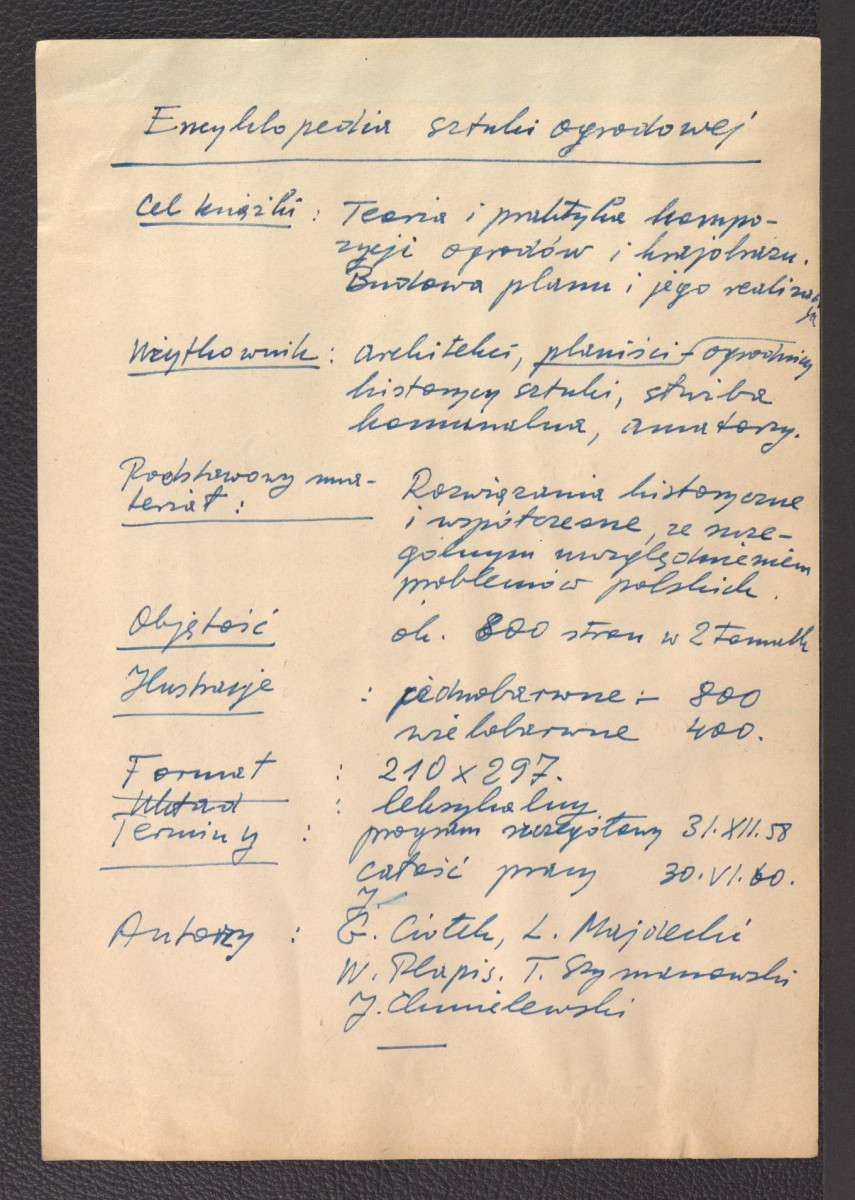 Encyklopedia sztuki ogrodowej
Cel książki : Teoria i praktyka kompo-
zycji ogrodów i krajobrazu.
Budowa planu i jego realizacja
Użytkownik : architekci, planiści - ogrodnicy
historycy sztuki, służba
komunalna, amatorzy.
Podstawowy ma-
teriał :
Rozwiązania historyczne
i współczesne, ze szcze-
gólnym uwzględnieniem
problemów polskich.
Objętość ok. 800 stron w 2 tomach
Ilustracje : jednobarwne :- 800
wielobarwne 400.
Format : 210 x 297.
Układ : leksykalny
Terminy : program szczegółowy 31.XII.58
całość pracy 30.VI.60.
J.
Autorzy : G. Ciołek, L. Majdecki
W. Plapis. T. Szymanowski
J. Chmielewski